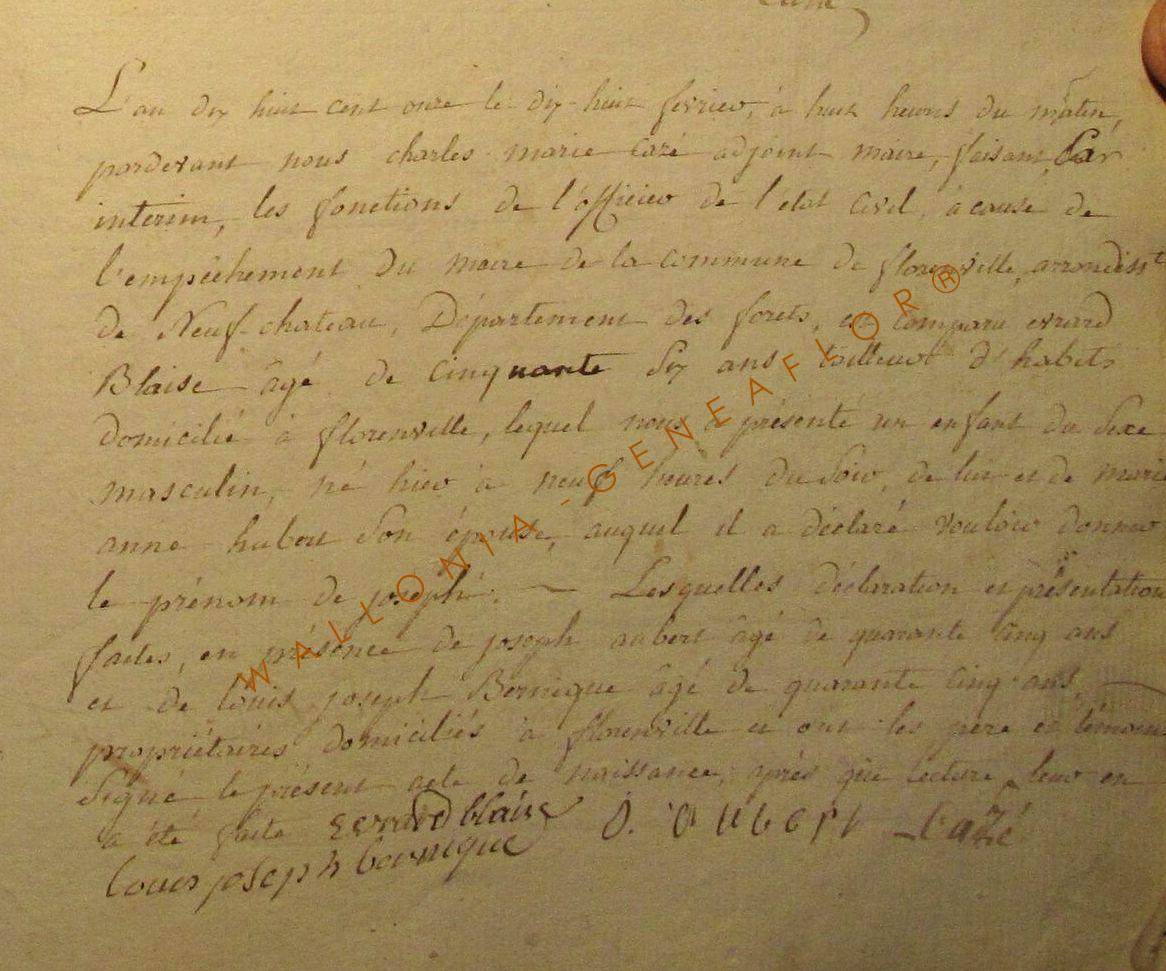 L'an dix huit cent onze le dix-huit fevrier, à huit heures du matin,
pardevant nous charles marie Cazé adjoint maire, faisant par
interim, les fonctions de l'officier de l'état Civil, à cause de
l'empêchement du maire de la commune de florenville, arrondisst
de Neuf-chateau, Département des forets, est comparu evrard
Blaise âgé de cinquante six ans tailleur d'habits
domicilié à florenville, lequel nous a présenté un enfant du Sexe
masculin, né hier à neuf heures du Soir, de lui et de marie
anne hubert Son épouse, auquel il a déclaré vouloir donner
le prénom de joseph. — Lesquelles déclaration et présentation
faites, en présence de joseph aubert âgé de quarante cinq ans
et de louis joseph Bernique âgé de quarante cinq ans,
propriétaires domiciliés à florenville et ont les père et témoins
Signé le présent acte de naissance, après que lecture leur en
a été faite evrard blaise J. aubert Cazé
louis joseph bernique
WALLONIA-GENEAFLOR®